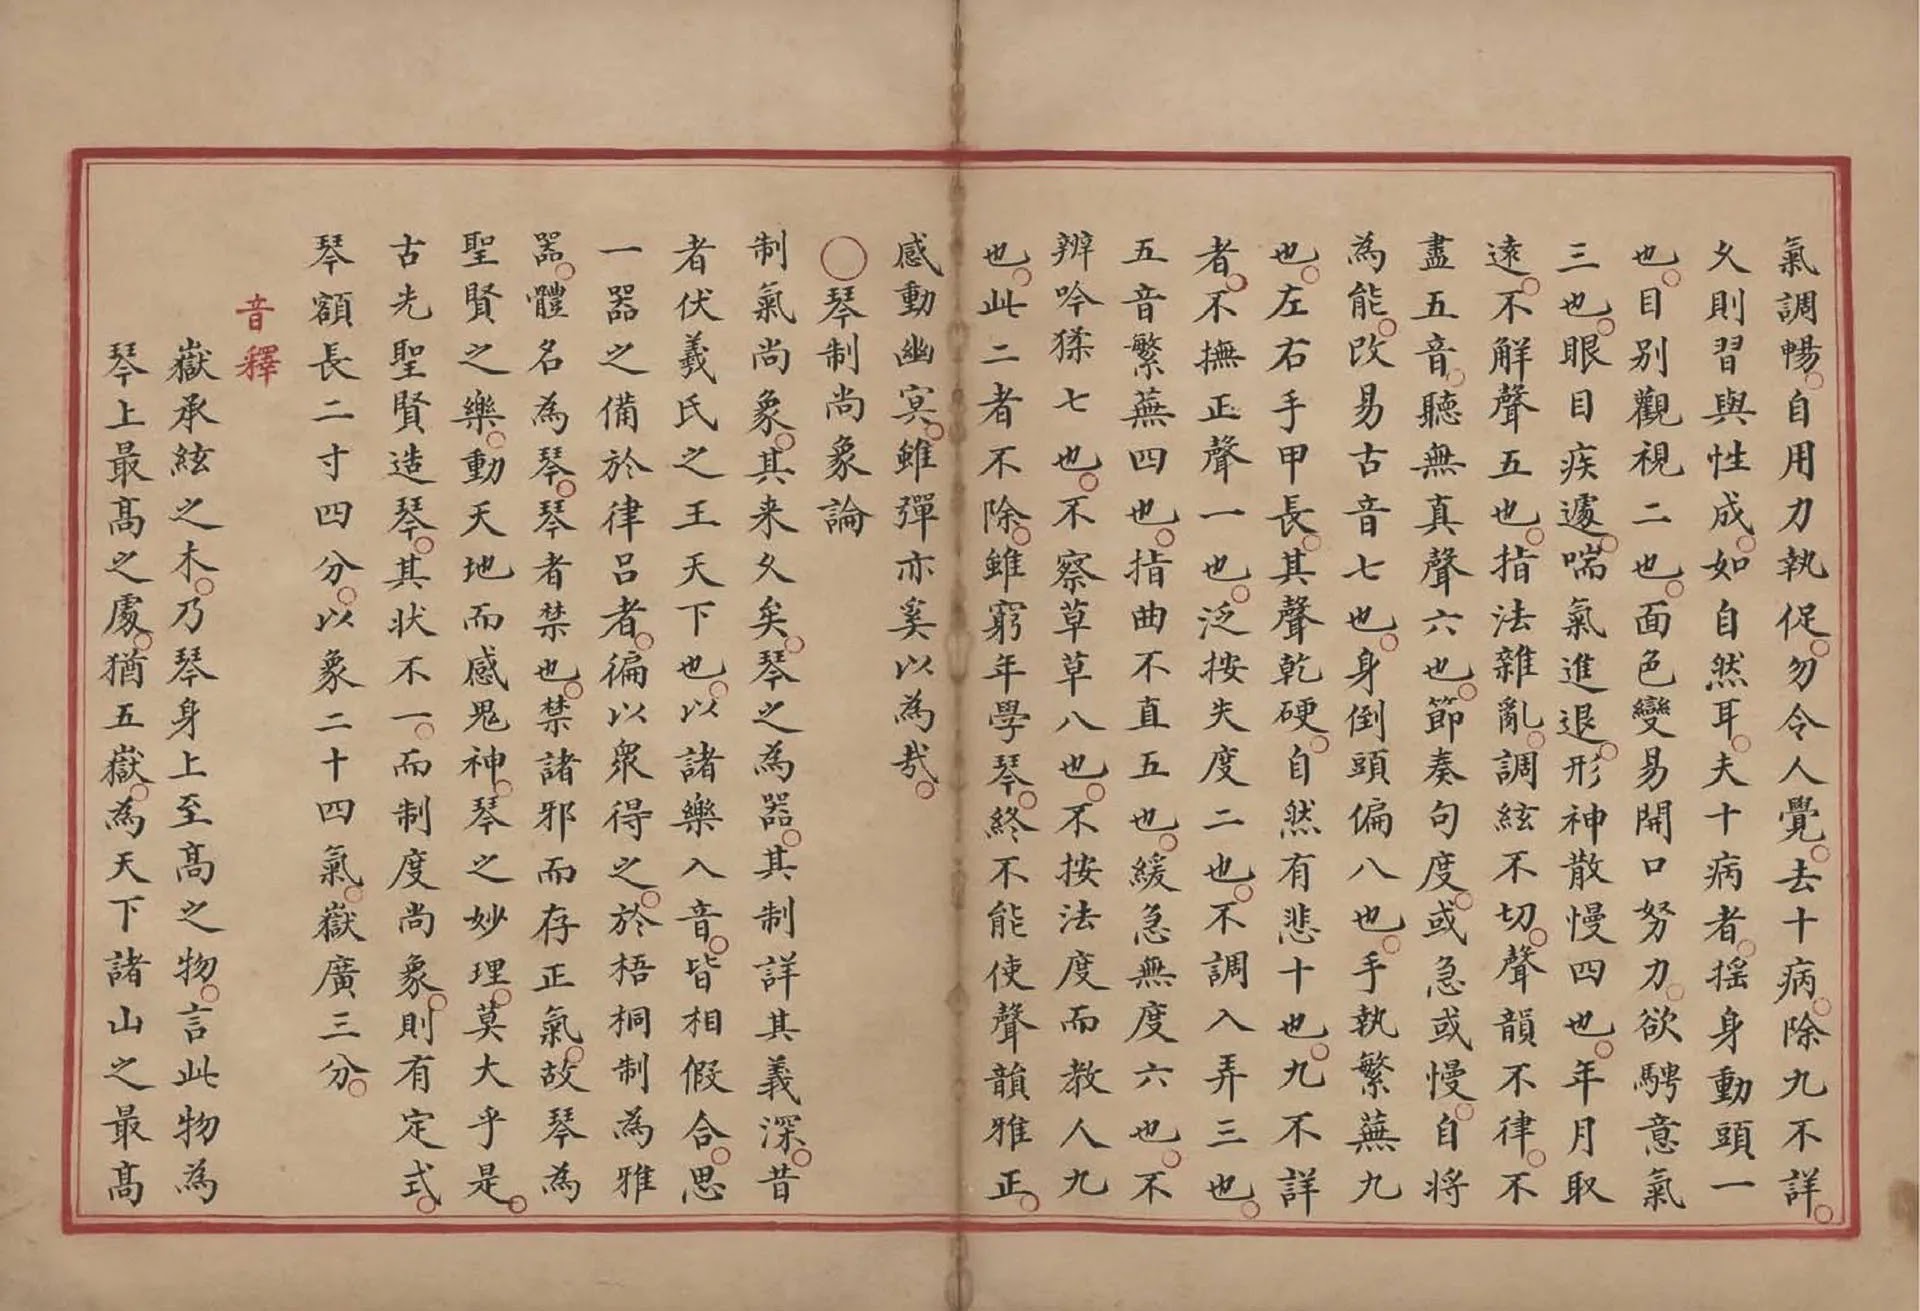 氣調暢。自用力執促。勿令人覺。去十病。除九不詳。
久則習與性成。如自然耳。夫十病者。搖身動頭一
也。目別觀視二也。面色變易開口努力。欲騁意氣
三也。眼目疾遽。喘氣進退。形神散慢四也。年月取
遠。不解聲五也。指法雜亂。調絃不切。聲韻不律。不
盡五音。聽無真聲六也。節奏句度。或急或慢。自將
為能。改易古音七也。身倒頭偏八也。手執繁蕪九
也。左右手甲長。其聲乾硬。自然有悲十也。九不詳
者。不撫正聲一也。泛按失度二也。不調入弄三也。
五音繁蕪四也。指曲不直五也。緩急無度六也。不
辨吟猱七也。不察草草八也。不按法度而教人九
也。此二者不除。雖窮年學琴。終不能使聲韻雅正。
感動幽冥。雖彈亦奚以為哉。
〇琴制尚象論
制氣尚象。其来久矣。琴之為器。其制詳其義深。昔
者伏羲氏之王天下也。以諸樂入音。皆相假合。思
一器之備於律呂者。徧以衆得之。於梧桐制為雅
器。體名為琴。琴者禁也。禁諸邪而存正氣。故琴為
聖賢之樂。動天地而感鬼神。琴之妙理。莫大乎是。
古先聖賢造琴。其状不一。而制度尚象。則有定式。
琴額長二寸四分。以象二十四氣。嶽廣三分。
音釋
嶽承絃之木。乃琴身上至髙之物。言此物為
琴上最髙之處。猶五嶽。為天下諸山之最髙